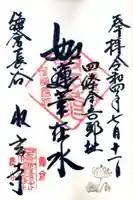 奉拝令和四年七月十一日
四條金吾邸址
如蓮華在水
鎌倉長谷
収玄寺